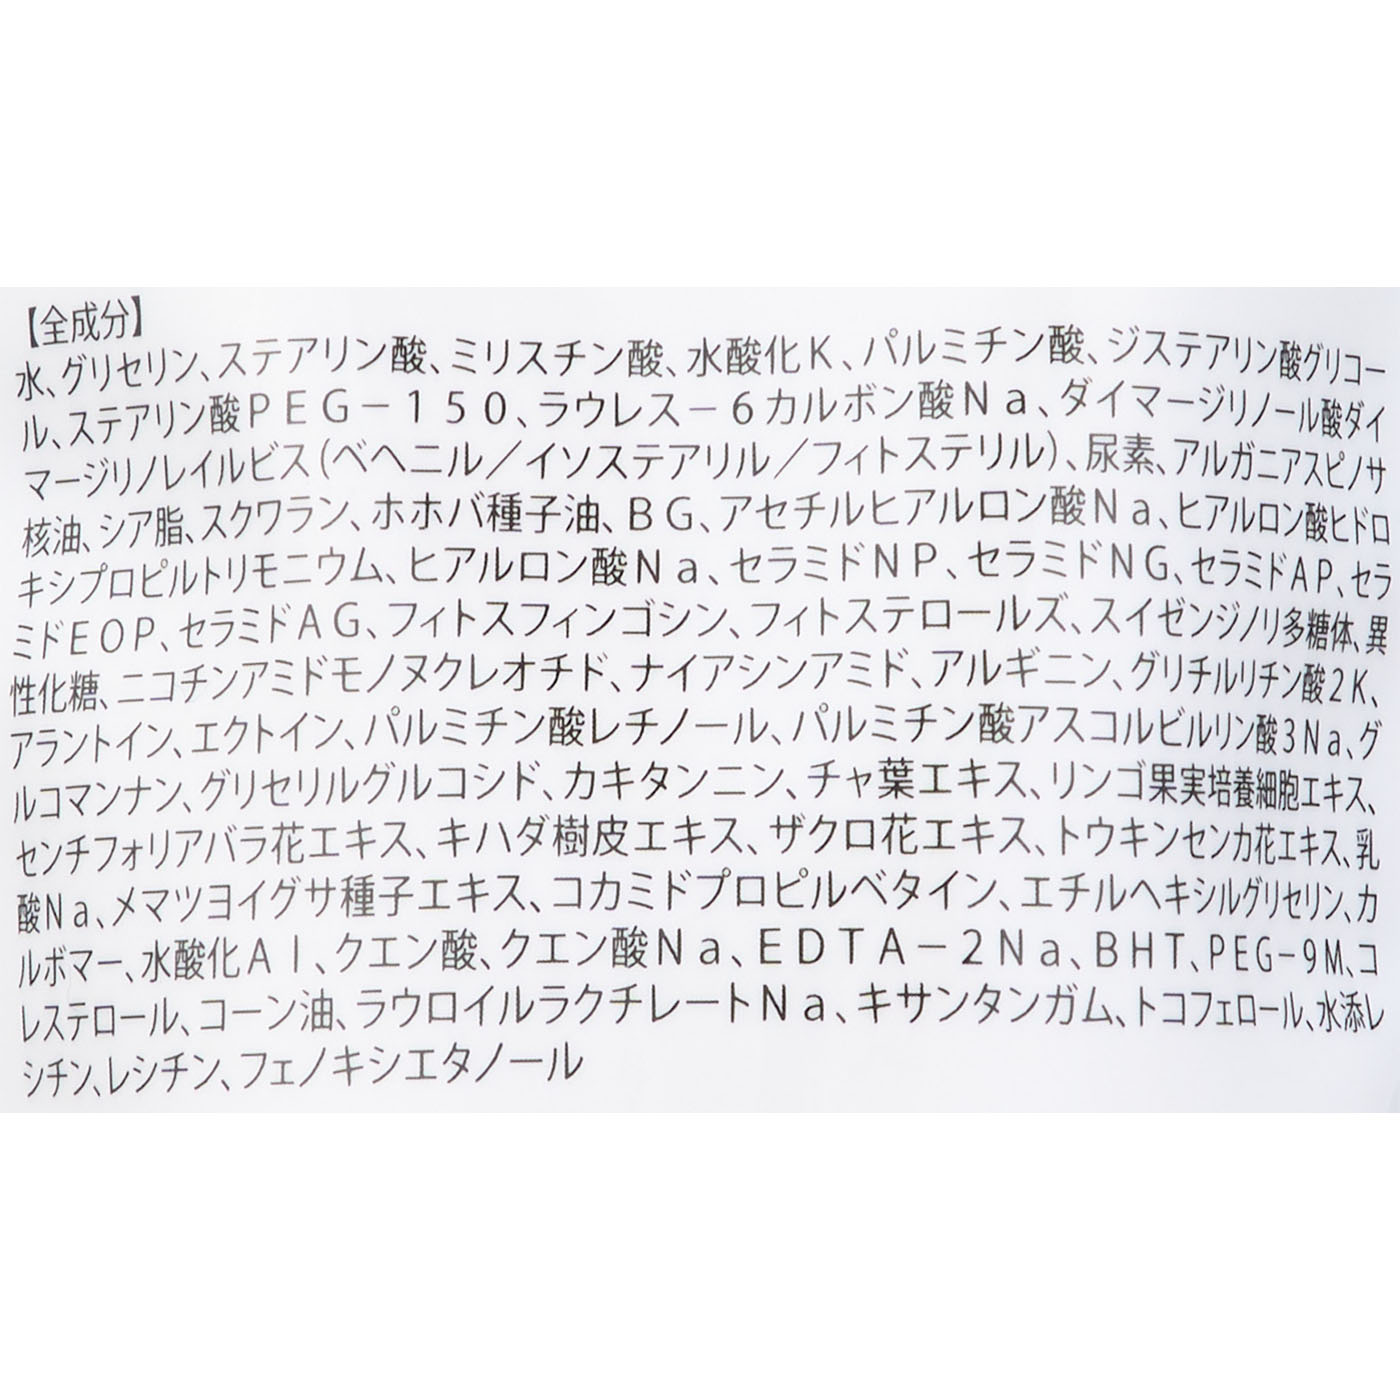 【全成分】
水、グリセリン、ステアリン酸、ミリスチン酸、水酸化K、パルミチン酸、ジステアリン酸グリコー
ル、ステアリン酸PEG－150、ラウレス－6カルボン酸Na、ダイマージリノール酸ダイ
マージリノレイルビス(ベヘニル／イソステアリル／フィトステリル)、尿素、アルガニアスピノサ
核油、シア脂、スクワラン、ホホバ種子油、BG、アセチルヒアルロン酸Na、ヒアルロン酸ヒドロ
キシプロピルトリモニウム、ヒアルロン酸Na、セラミドNP、セラミドNG、セラミドAP、セラ
ミドEOP、セラミドAG、フィトスフィンゴシン、フィトステロールズ、スイゼンジノリ多糖体、異
性化糖、ニコチンアミドモノヌクレオチド、ナイアシンアミド、アルギニン、グリチルリチン酸2K、
アラントイン、エクトイン、パルミチン酸レチノール、パルミチン酸アスコルビルリン酸3Na、グ
ルコマンナン、グリセリルグルコシド、カキタンニン、チャ葉エキス、リンゴ果実培養細胞エキス、
センチフォリアバラ花エキス、キハダ樹皮エキス、ザクロ花エキス、トウキンセンカ花エキス、乳
酸Na、メマツヨイグサ種子エキス、コカミドプロピルベタイン、エチルヘキシルグリセリン、カ
ルボマー、水酸化Al、クエン酸、クエン酸Na、EDTA－2Na、BHT、PEG－9M、コ
レステロール、コーン油、ラウロイルラクチレートNa、キサンタンガム、トコフェロール、水添レ
シチン、レシチン、フェノキシエタノール